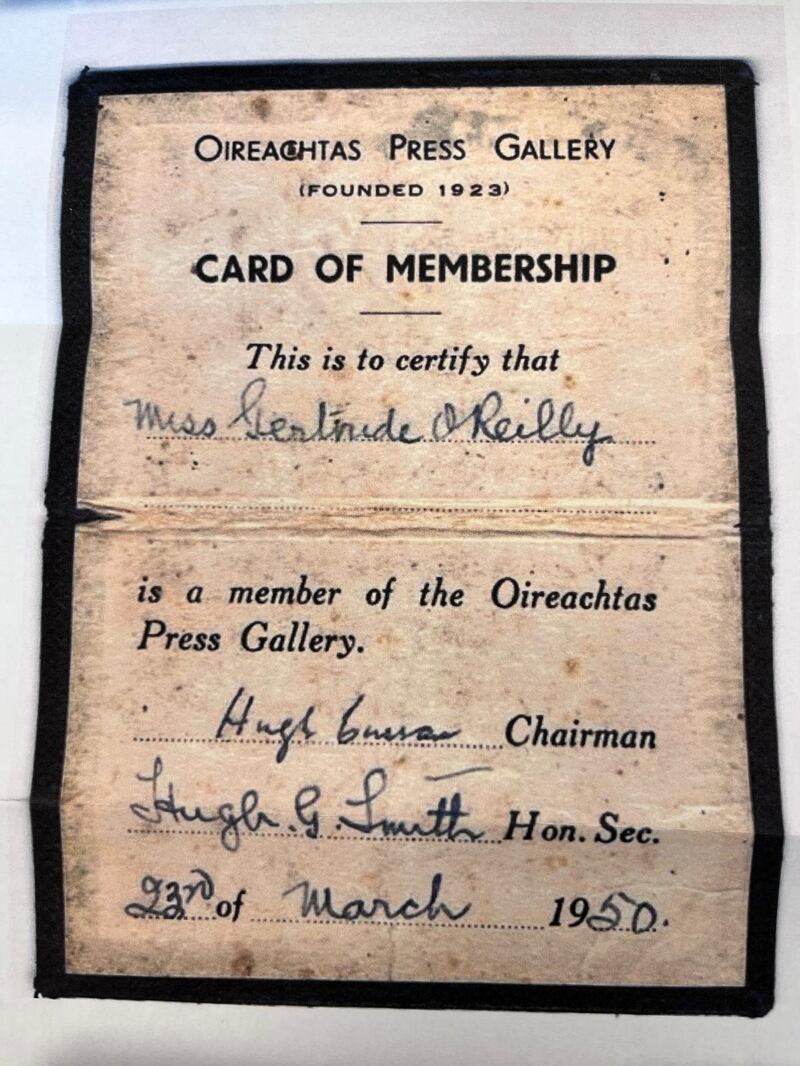 OIREACHTAS PRESS GALLERY
(FOUNDED 1923)
CARD OF MEMBERSHIP
This is to certify that
Miss Gertrude O'Reilly
is a member of the Oireachtas
Press Gallery.
Hugh Chairman
Hugh G. Smith Hon. Sec.
23rd of March 1950.